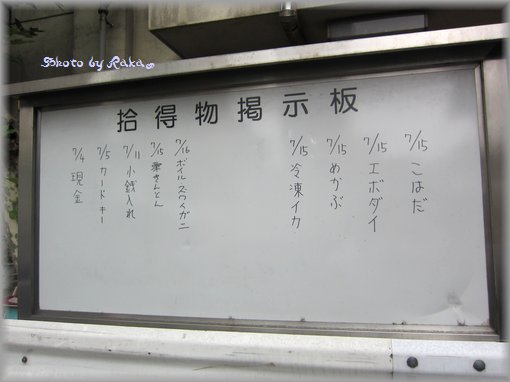 Photo by Raka
拾得物掲示板
7/15 こはだ
7/15 エボダイ
7/15 めかぶ
7/15 冷凍イカ
7/16 ボイルズワイガニ
7/15 栗きんとん
7/11 小銭入れ
7/5 カードキー
7/4 現金